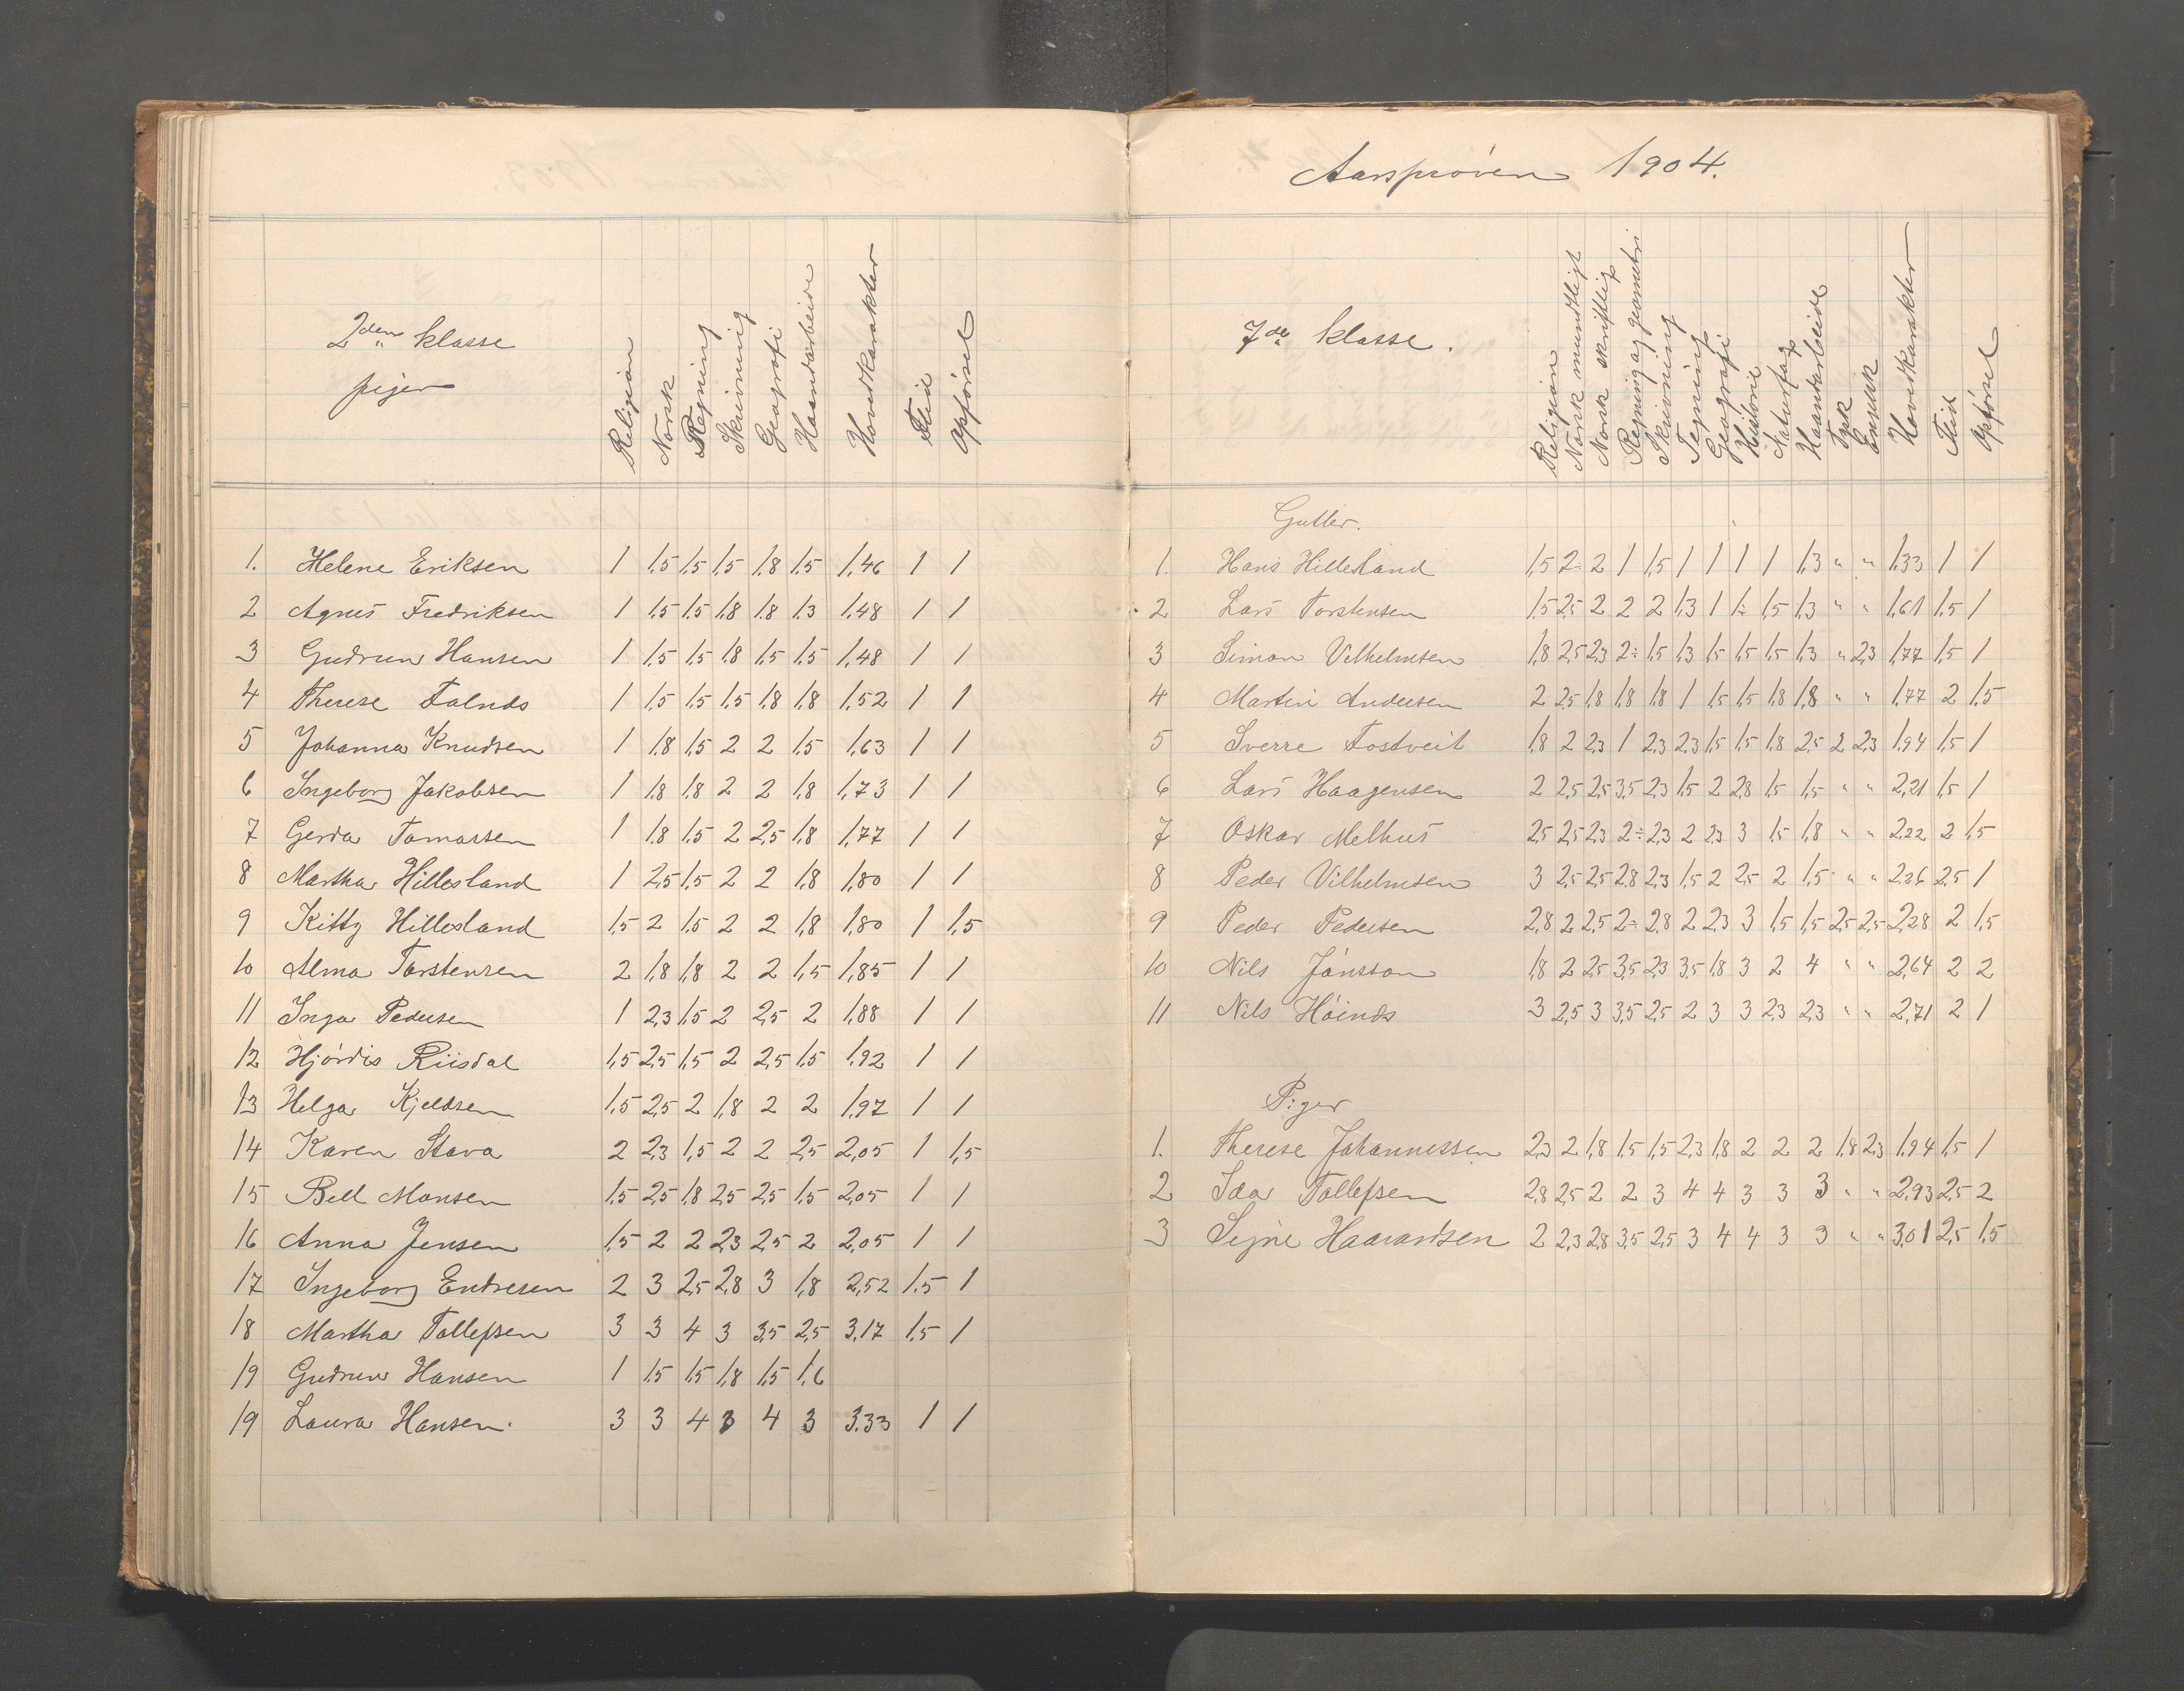 2den klasse
piger
Religion Norsk Regning Skrivning Geografi Haandarbeide Hovedkarakter Flid Opførsel
1. Helene Eriksen 1 1,5 1,5 1,5 1,8 1,5 1,46 1 1
2 Agnes Fredriksen 1 1,5 1,5 1,8 1,8 1,3 1,48 1 1
3 Gudrun Hansen 1 1,5 1,5 1,8 1,5 1,5 1,48 1 1
4 Therese 1 1,5 1,5 1,5 1,8 1,8 1,52 1 1
5 Johanna Knudsen 1 1,8 1,5 2 2 1,5 1,63 1 1
6 Ingeborg Jakobsen 1 1,8 1,8 2 2 1,8 1,73 1 1
7 Gerda Tomassen 1 1,8 1,5 2 2,5 1,8 1,77 1 1
8 Martha Hillesland 1 2,5 1,5 2 2 1,8 1,80 1 1
9 Kitty Hillesland 1,5 2 1,5 2 2 1,8 1,80 1 1,5
10 Alma Torstensen 2 1,8 1,8 2 2 1,5 1,85 1 1
11 Inga Pedersen 1 2,3 1,5 2 2,5 2 1,88 1 1
12 Hjørdis Riisdal 1,5 2,5 1,5 2 2,5 1,5 1,92 1 1
13 Helga Kjeldsen 1,5 2,5 2 1,8 2 2 1,97 1 1
14 Karen Stava 2 2,3 1,5 2 2 2,5 2,05 1 1,5
15 Bell Monsen 1,5 2,5 1,8 2,5 2,5 1,5 2,05 1 1
16 Anna Jensen 1,5 2 2 2,3 2,5 2 2,05 1 1
17 Ingeborg Endresen 2 3 2,5 2,8 3 1,8 2,52 1,5 1
18 Martha Tollefsen 3 3 4 3 3,5 2,5 3,17 1,5 1
19 Gudrun Hansen 1 1,5 1,5 1,8 1,5 1,6
19 Laura Hansen. 3 3 4 3 4 3 3.33 1 1
Aarsprøven 1904.
7de klasse.
Religion Norsk mundtligt Norsk skriftlig Regning og geometri Skrivning Tegning Geografi Historie Naturfag Haandarbeide Tysk Engelsk Hovedkarakter Flid Opførsel
Gutter.
1. Hans Hillesland 1,5 2÷ 2 1 1,5 1 1 1 1 1,3 " " 1,33 1 1
2 Lars Torstensen 1,5 2,5 2 2 2 1,3 1 1÷ 1,5 1,3 " " 1,61 1,5 1
3 Simon Vilhelmsen 1,8 2,5 2,3 2÷ 1,5 1,3 1,5 1,5 1,5 1,3 " 2,3 1,77 1,5 1
4 Martin Andersen 2 2,5 1,8 1,8 1,8 1 1,5 1,5 1,8 1,8 " " 1,77 2 1,5
5 Sverre Tostveit 1,8 2 2,3 1 2,3 2,3 1,5 1,5 1,8 2,5 2 2,3 1,94 1,5 1
6 Lars Haagensen 2 2,5 2,5 3,5 2,3 1,5 2 2,8 1,5 1,5 " " 2,21 1,5 1
7 Oskar Melhus 2,5 2,5 2,3 2÷ 2,3 2 2,3 3 1,5 1,8 " " 2,22 2 1,5
8 Peder Vilhelmsen 3 2,5 2,5 2,8 2,3 1,5 2 2,5 2 1,5 " " 2,26 2,5 1
9 Peder Pedersen 2,8 2 2,5 2÷ 2,8 2 2,3 3 1,5 1,5 2,5 2,5 2,28 2 1,5
10 Nils Jónsson 1,8 2 2,5 3,5 2,3 3,5 1,8 3 2 4 " " 2,64 2 2
11 Nils Høinds 3 2,5 3 3,5 2,5 2 3 3 2,3 2,3 " " 2,71 2 1
Piger
1. Therese Johannessen 2,3 2 1,8 1,5 1,5 2,3 1,8 2 2 2 1,8 2,3 1,94 1,5 1
2 Ida Tollefsen 2,8 2,5 2 2 3 4 4 3 3 3 " " 2,93 2,5 2
3 Signe Haavardsen 2 2,3 2,8 3,5 2,5 3 4 4 3 3 " " 3,01 2,5 1,5